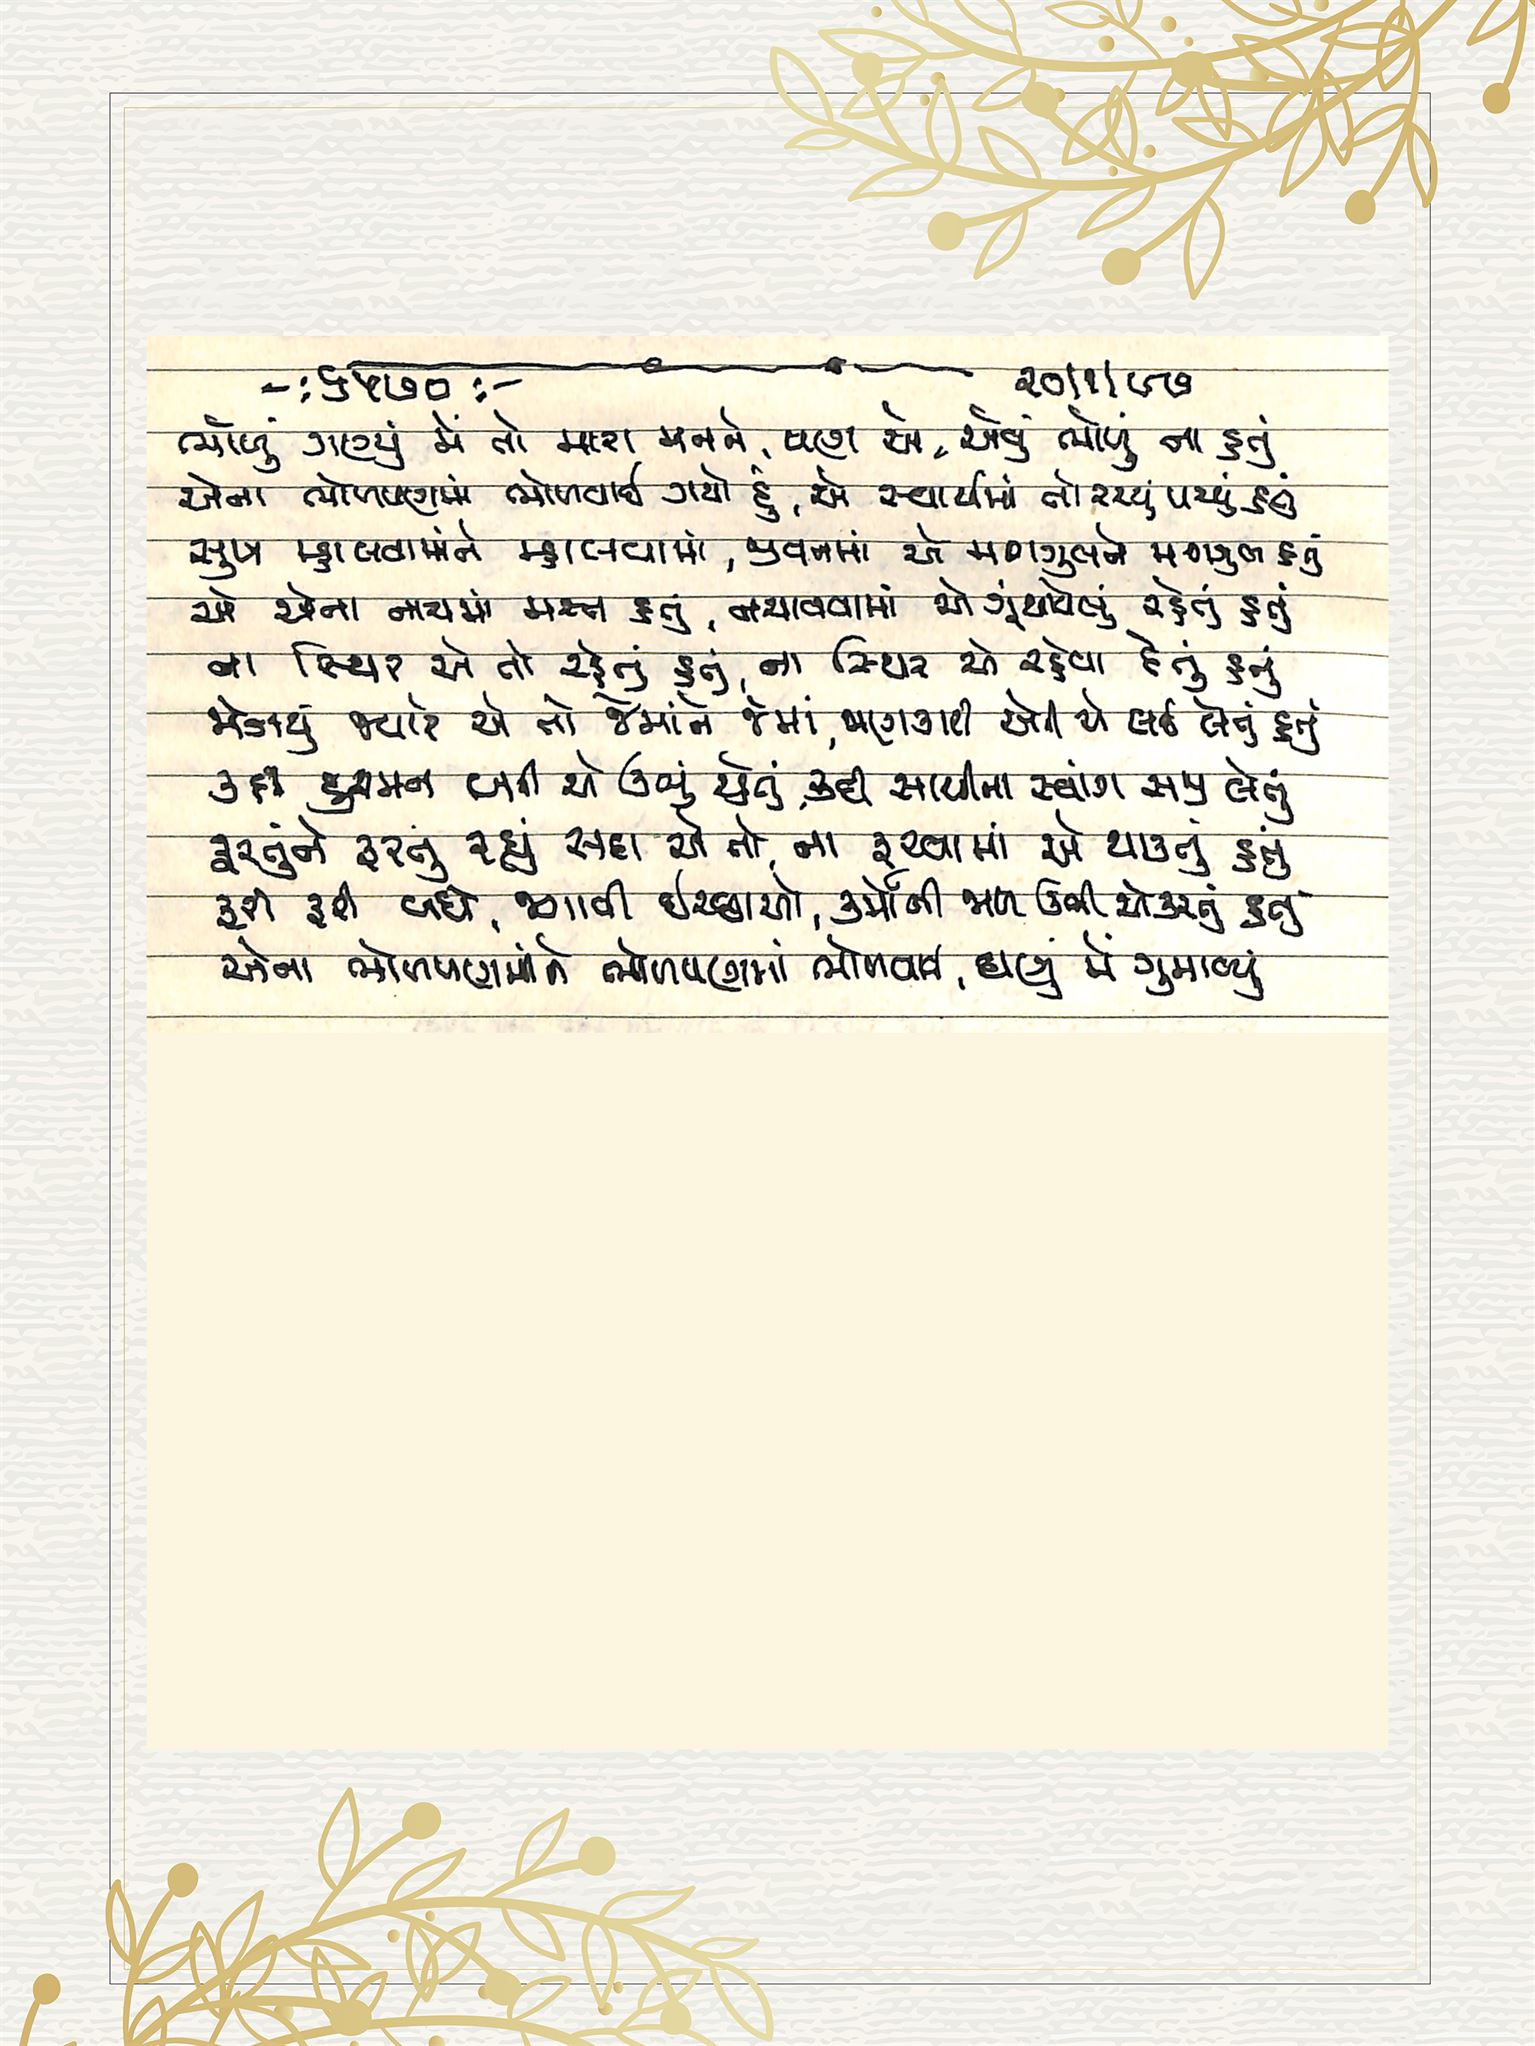 -: ૬૫૭૦ :- ૨૦/૧/૯૭
ભોળું ગણ્યું મેં તો મારા મનને, પણ એ, એવું ભોળું ના હતું
એના ભોળપણમાં ભોળવાઈ ગયો હું, એ સ્વાર્થમાં તો રચ્યું પચ્યું હતું
સુખ મ્હાલવામાંને મ્હાલવામાં, જીવનમાં એ મશગુલને મશગુલ હતું
એ એના નાચમાં મસ્ત હતું, નચાવવામાં એ ગૂંથાયેલું રહેતું હતું
ના સ્થિર એ તો રહેતું હતું, ના સ્થિર એ રહેવા દેતું હતું
ભેળવ્યું જ્યારે એ તો જેમાંને જેમાં, જાણકારી એની એ લઈ લેતું હતું
કદી દુશ્મન બની એ ઊભું થાતું, કદી સાથીના સ્વાંગ સજી લેતું
ફરતુંને ફરતું રહ્યું સદા એ તો, ના ફરવામાં એ થાકતું હતું
ફરી ફરી બધે, જગાવી ઇચ્છાઓ, કર્મોની જાળ ઊભી એ કરતું હતું
એના ભોળપણમાંને ભોળપણમાં ભોળવાઈ, ઘણું મેં ગુમાવ્યું